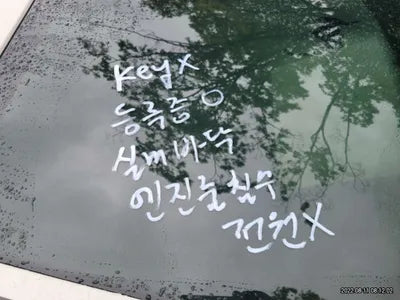 Key X
등록증 O
실내바닥
엔진룸침수
전원X
2022/08/11 08:12:02